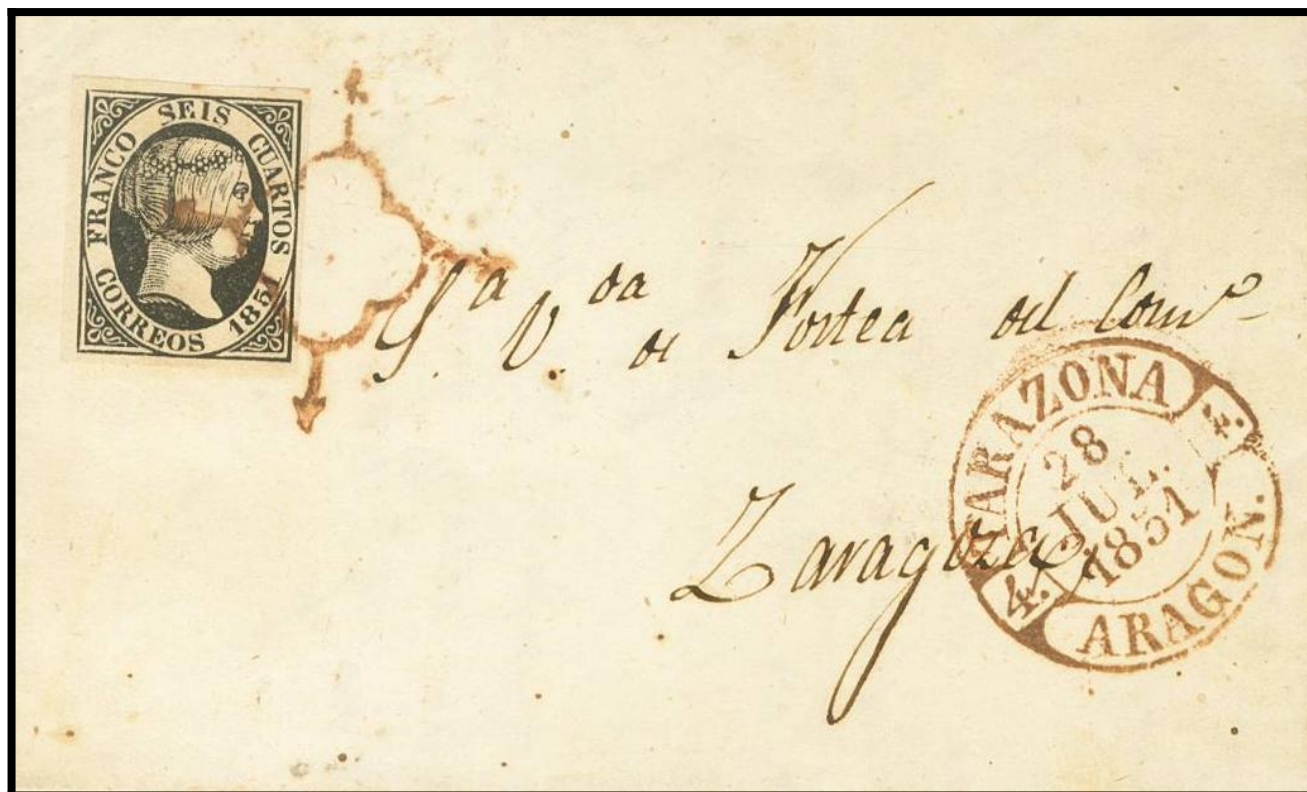 FRANCO SEIS CUARTOS
CORREOS 1851
Sª. V.ᵈᵃ de Fortea del Comº
Zaragoza
TARAZONA
4.
28
JUL.
1851
4.
ARAGON.